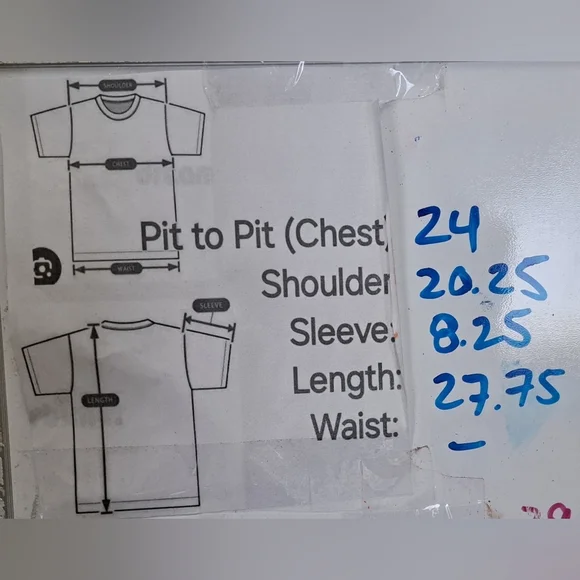 SHOULDER
CHEST
WAIST
Pit to Pit (Chest) 24
Shoulder 20.25
Sleeve: 8.25
Length: 27.75
Waist: -
SLEEVE
LENGTH